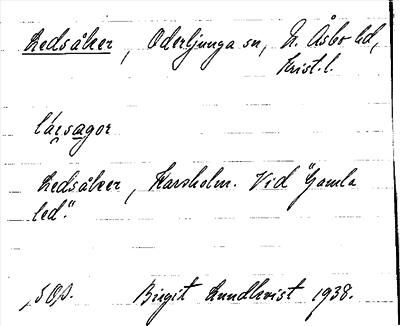 Ledsåker, Oderljunga sn, N. Åsbo hd,
Krist. l.
Ledsåker, Karsholm. Vid "Gamla
led".
Birgit Lundkvist 1938.